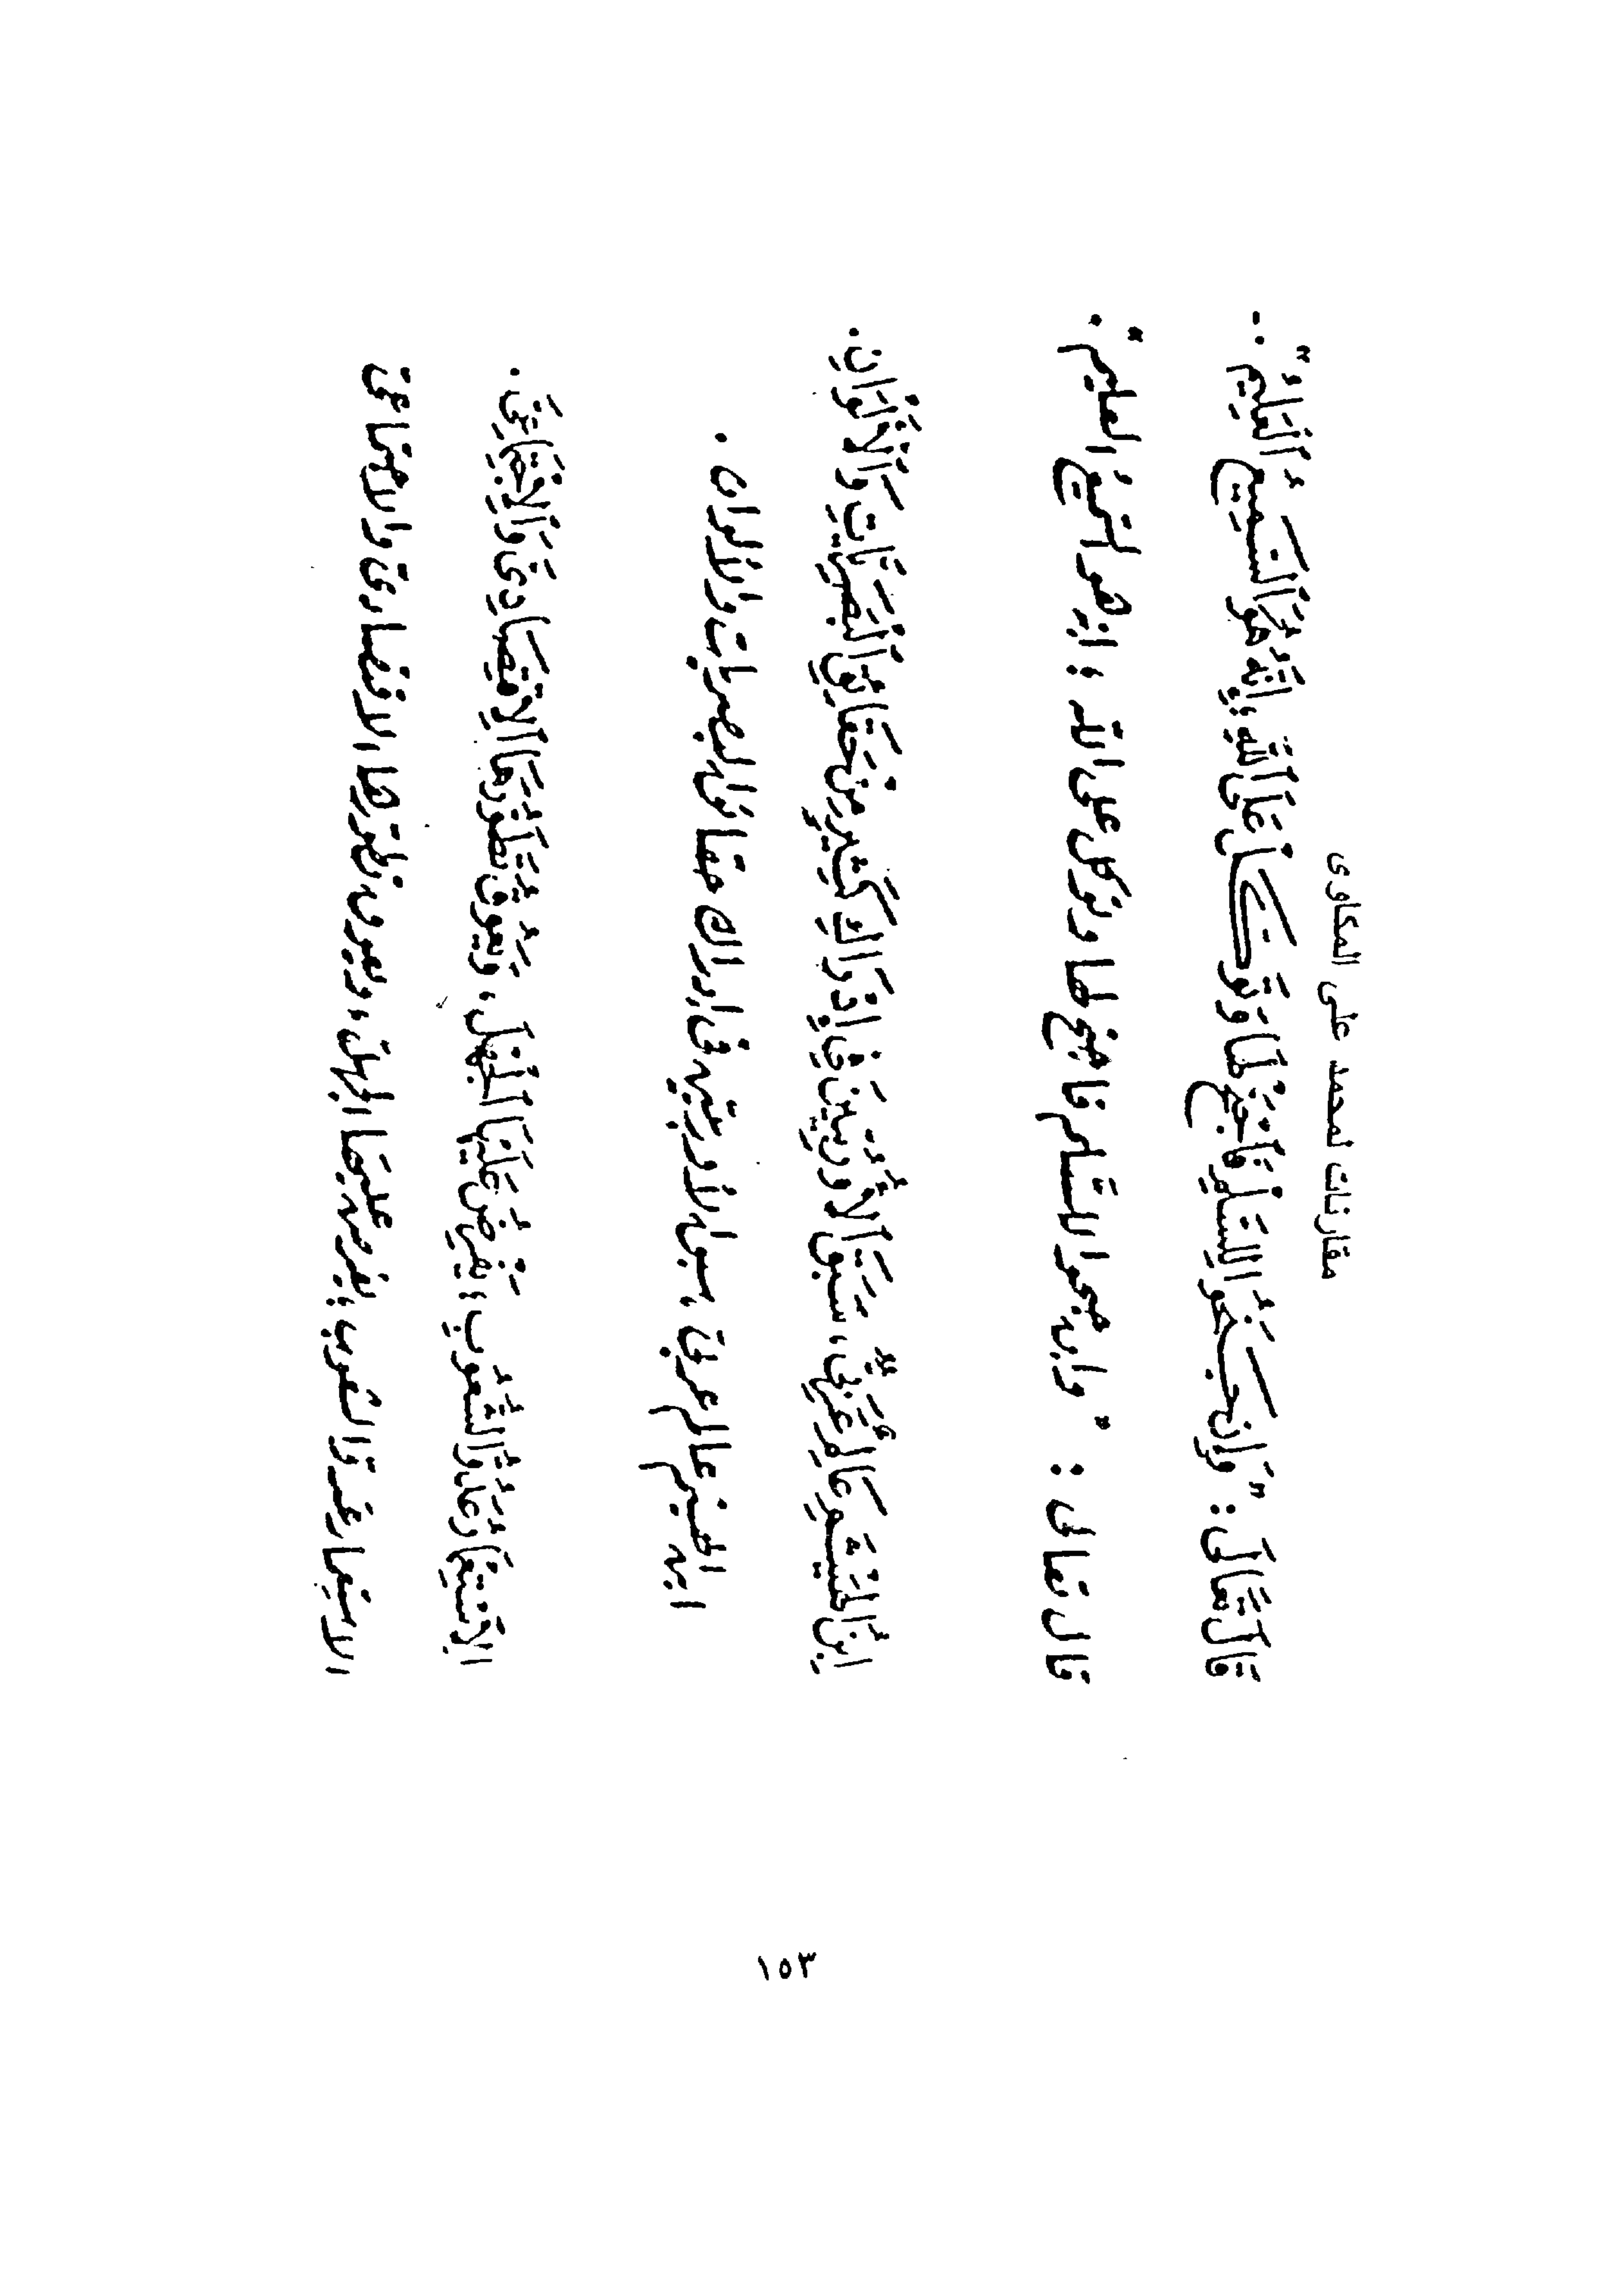 مقارنات لمحمد على المكاوى
قَالَ تَعَالَى : " وَإِنْ جَنَحُوا لِلسَّلْمِ فَاجْنَحْ لَهَا وَتَوَكَّلْ عَلَى اللهِ ، إِنَّهُ هُوَ السَّمِيعُ الْعَلِيمُ " .
قال تعالى : " وإن جنحوا للسّلم فاجنح لها وتوكل على الله : إنه هو السميعُ العليم " .
اِبْنُ الْهَيْثَمِ عَالِمٌ عَرَبِيٌّ ، سَبَقَ الْأُورُبِّيِّينَ فِي إِدْرَاكِ كَثِيرٍ مِنْ حَقَائِقِ الْبَصَرِيَّاتِ وَالْأَلْوَانِ .
ابن الهيثم عالم عربى ، سبق الأوربيين فى إدراك حقائق البصريات والألوان .
اَلِاسْتِعْمَارُ عَدُوُّ الشُّعُوبِ ؛ يَفْرِضُ عَلَيْهَا الْجَهْلَ ، وَيَعُوقُ تَطَوُّرَهَا الِاقْتِصَادِىَّ وَالِاجْتِمَاعِىَّ .
الاستعمار عدوّ الشعوب ؛ يفرض عليها الجهل ، ويعوق تطوّرها الاقتصادى والاجتماعى
١٥٣